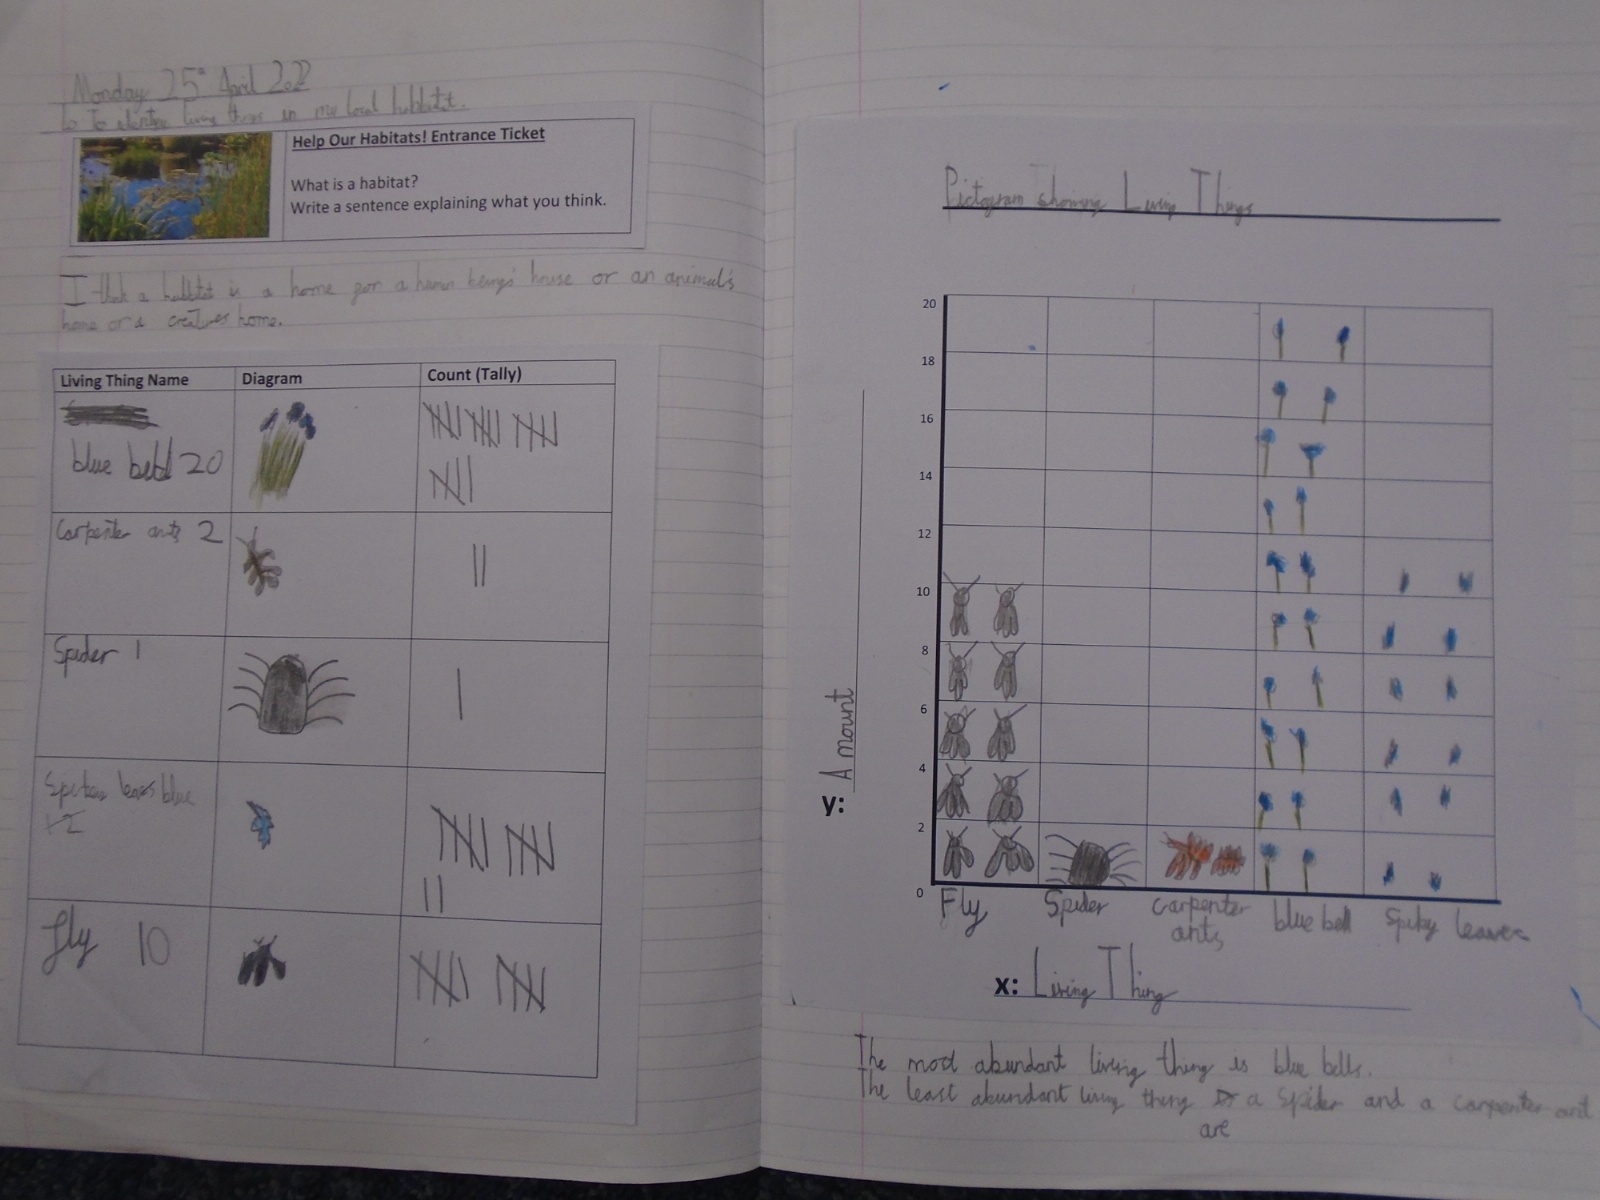 Monday 25th April 2022
Lo To identify living things in my local habbitat.
Help Our Habitats! Entrance Ticket
What is a habitat?
Write a sentence explaining what you think.
I think a habbitat is a home for a human beings' house or an animal's
home or a creatures home.
Living Thing Name Diagram Count (Tally)
blue bell 20
Carpenter ants 2
Spider 1
leaves blue
12
fly 10
Pictogram showing Living Things
20
18
16
14
12
10
8
6
4
2
0
y: Amount
Fly Spider carpenter ants blue bell Spiky leaves
x: Living Thing
The most abundant living thing is blue bells.
The least abundant living thing a Spider and a carpenter ant
are